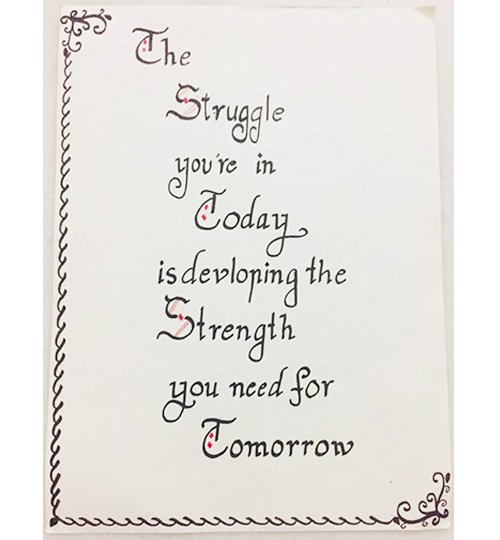 The
Struggle
you're in
Today
is devloping the
Strength
you need for
Tomorrow